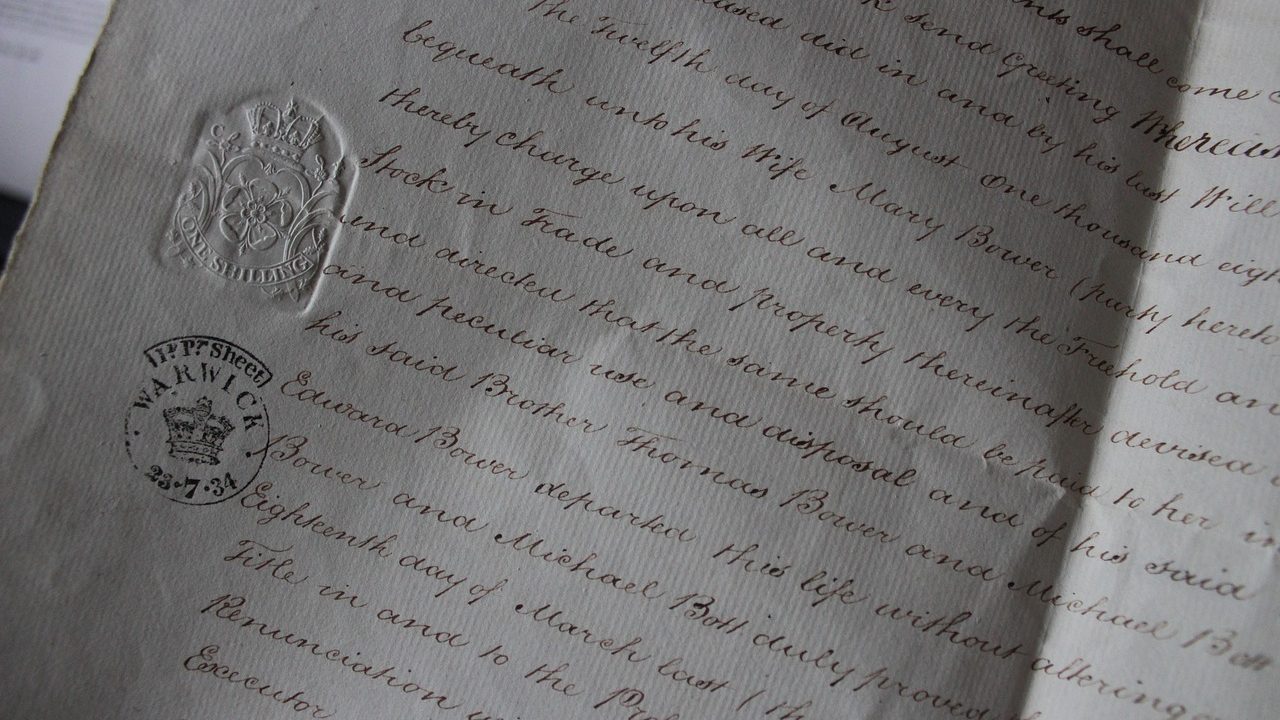 shall come
send Greeting Whereas
did in and by his last Will
The Twelfth day of August One thousand eigh
bequeath unto his Wife Mary Bower (party hereto
thereby charge upon all and every the Freehold an
Stock in Trade and property thereinafter devised
and directed that the same should be paid to her in
and peculiar use and disposal and of his said
his said Brother Thomas Bower and Michael Bott
Edward Bower departed this life without altering
Bower and Michael Bott duly proved
Eighteenth day of March last (th
Title in and to the
Renunciation
Executor
ONE SHILLING
Sheet
WARWICK
23·7·34